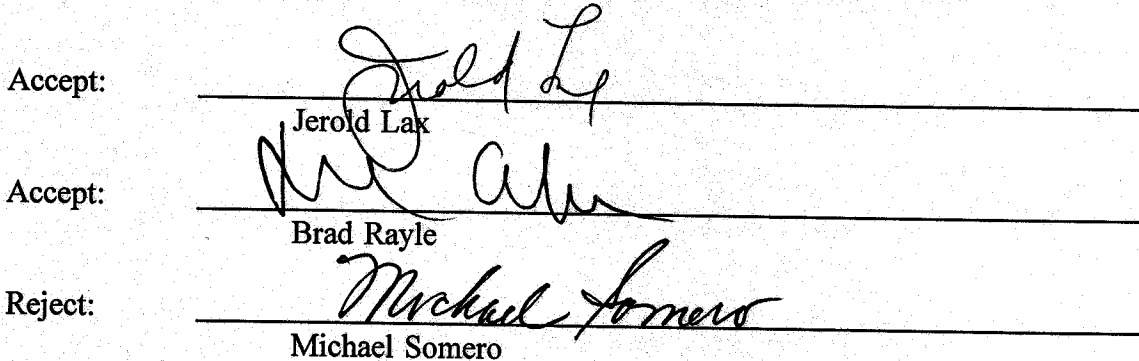 Accept: Jerold Lax
Jerold Lax
Accept:
Brad Rayle
Reject: Michael Somero
Michael Somero